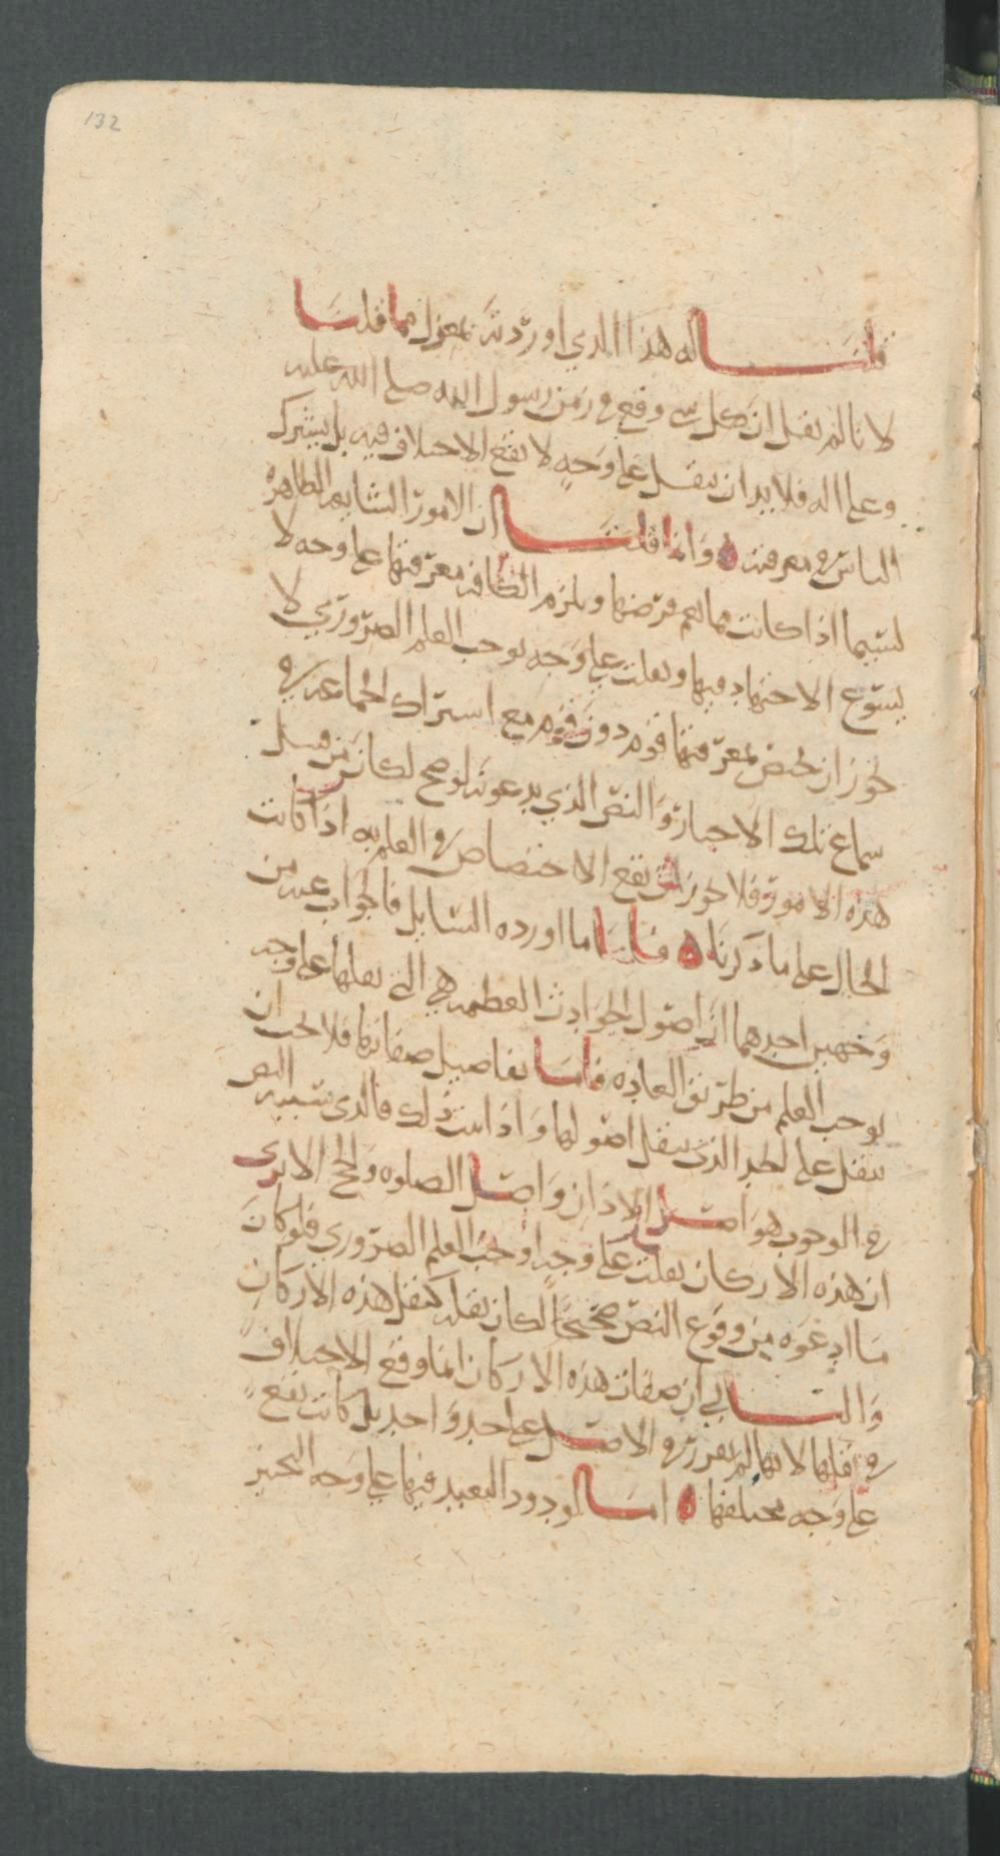 132
قلنا له هذا الذي اوردته بمعزل مما قلنا
لانا لم نقل ان كل شي وقع في زمن رسول الله صلى الله عليه
وعلى اله فلا بد ان ينقل على وجه لا يقع الاختلاف فيه بل يشترك
الناس في معرفته وانما قلنا ان الامور الشايعه الظاهرة
لسيما اذا كانت مما يعم فرضها ويلزم الكافه معرفتها على وجه لا
يسوغ الاجتهاد فيها ونقلت على وجه يوجب العلم الضروري لا
يجوز ان يختص بمعرفتها قوم دون قوم مع اشتراك الجماعه في
سماع تلك الاخبار والنص الذي يدعونه لو صح لكان من قبيل
هذه الامور فلا يجوز ان يقع الاختصاص في العلم به اذا كانت
الحال على ما ذكرناه فاما ما اورده السايل فالجواب عنه من
وجهين احدهما ان اصول الحوادث العظيمه هي التي نقلها على وجه
يوجب العلم من طريق العاده فاما تفاصيل صفاتها فلا يجب ان
تنقل على الحد الذي ينقل اصولها واذا ثبت ذلك فالذي يشبه النص
في الوجوب هو اصل الاذان واصل الصلوه والحج الا ترى
ان هذه الاركان نقلت على وجه اوجب العلم الضروري فلو كان
ما ادعوه من وقوع النص صحيحا لكان نقله كنقل هذه الاركان
والثاني ان صفات هذه الاركان انما وقع الاختلاف
في نقلها لانها لم تقرر في الاصل على حد واحد بل كانت تقع
على وجه مختلفها اما لورود التعبد فيها على وجه التخيير